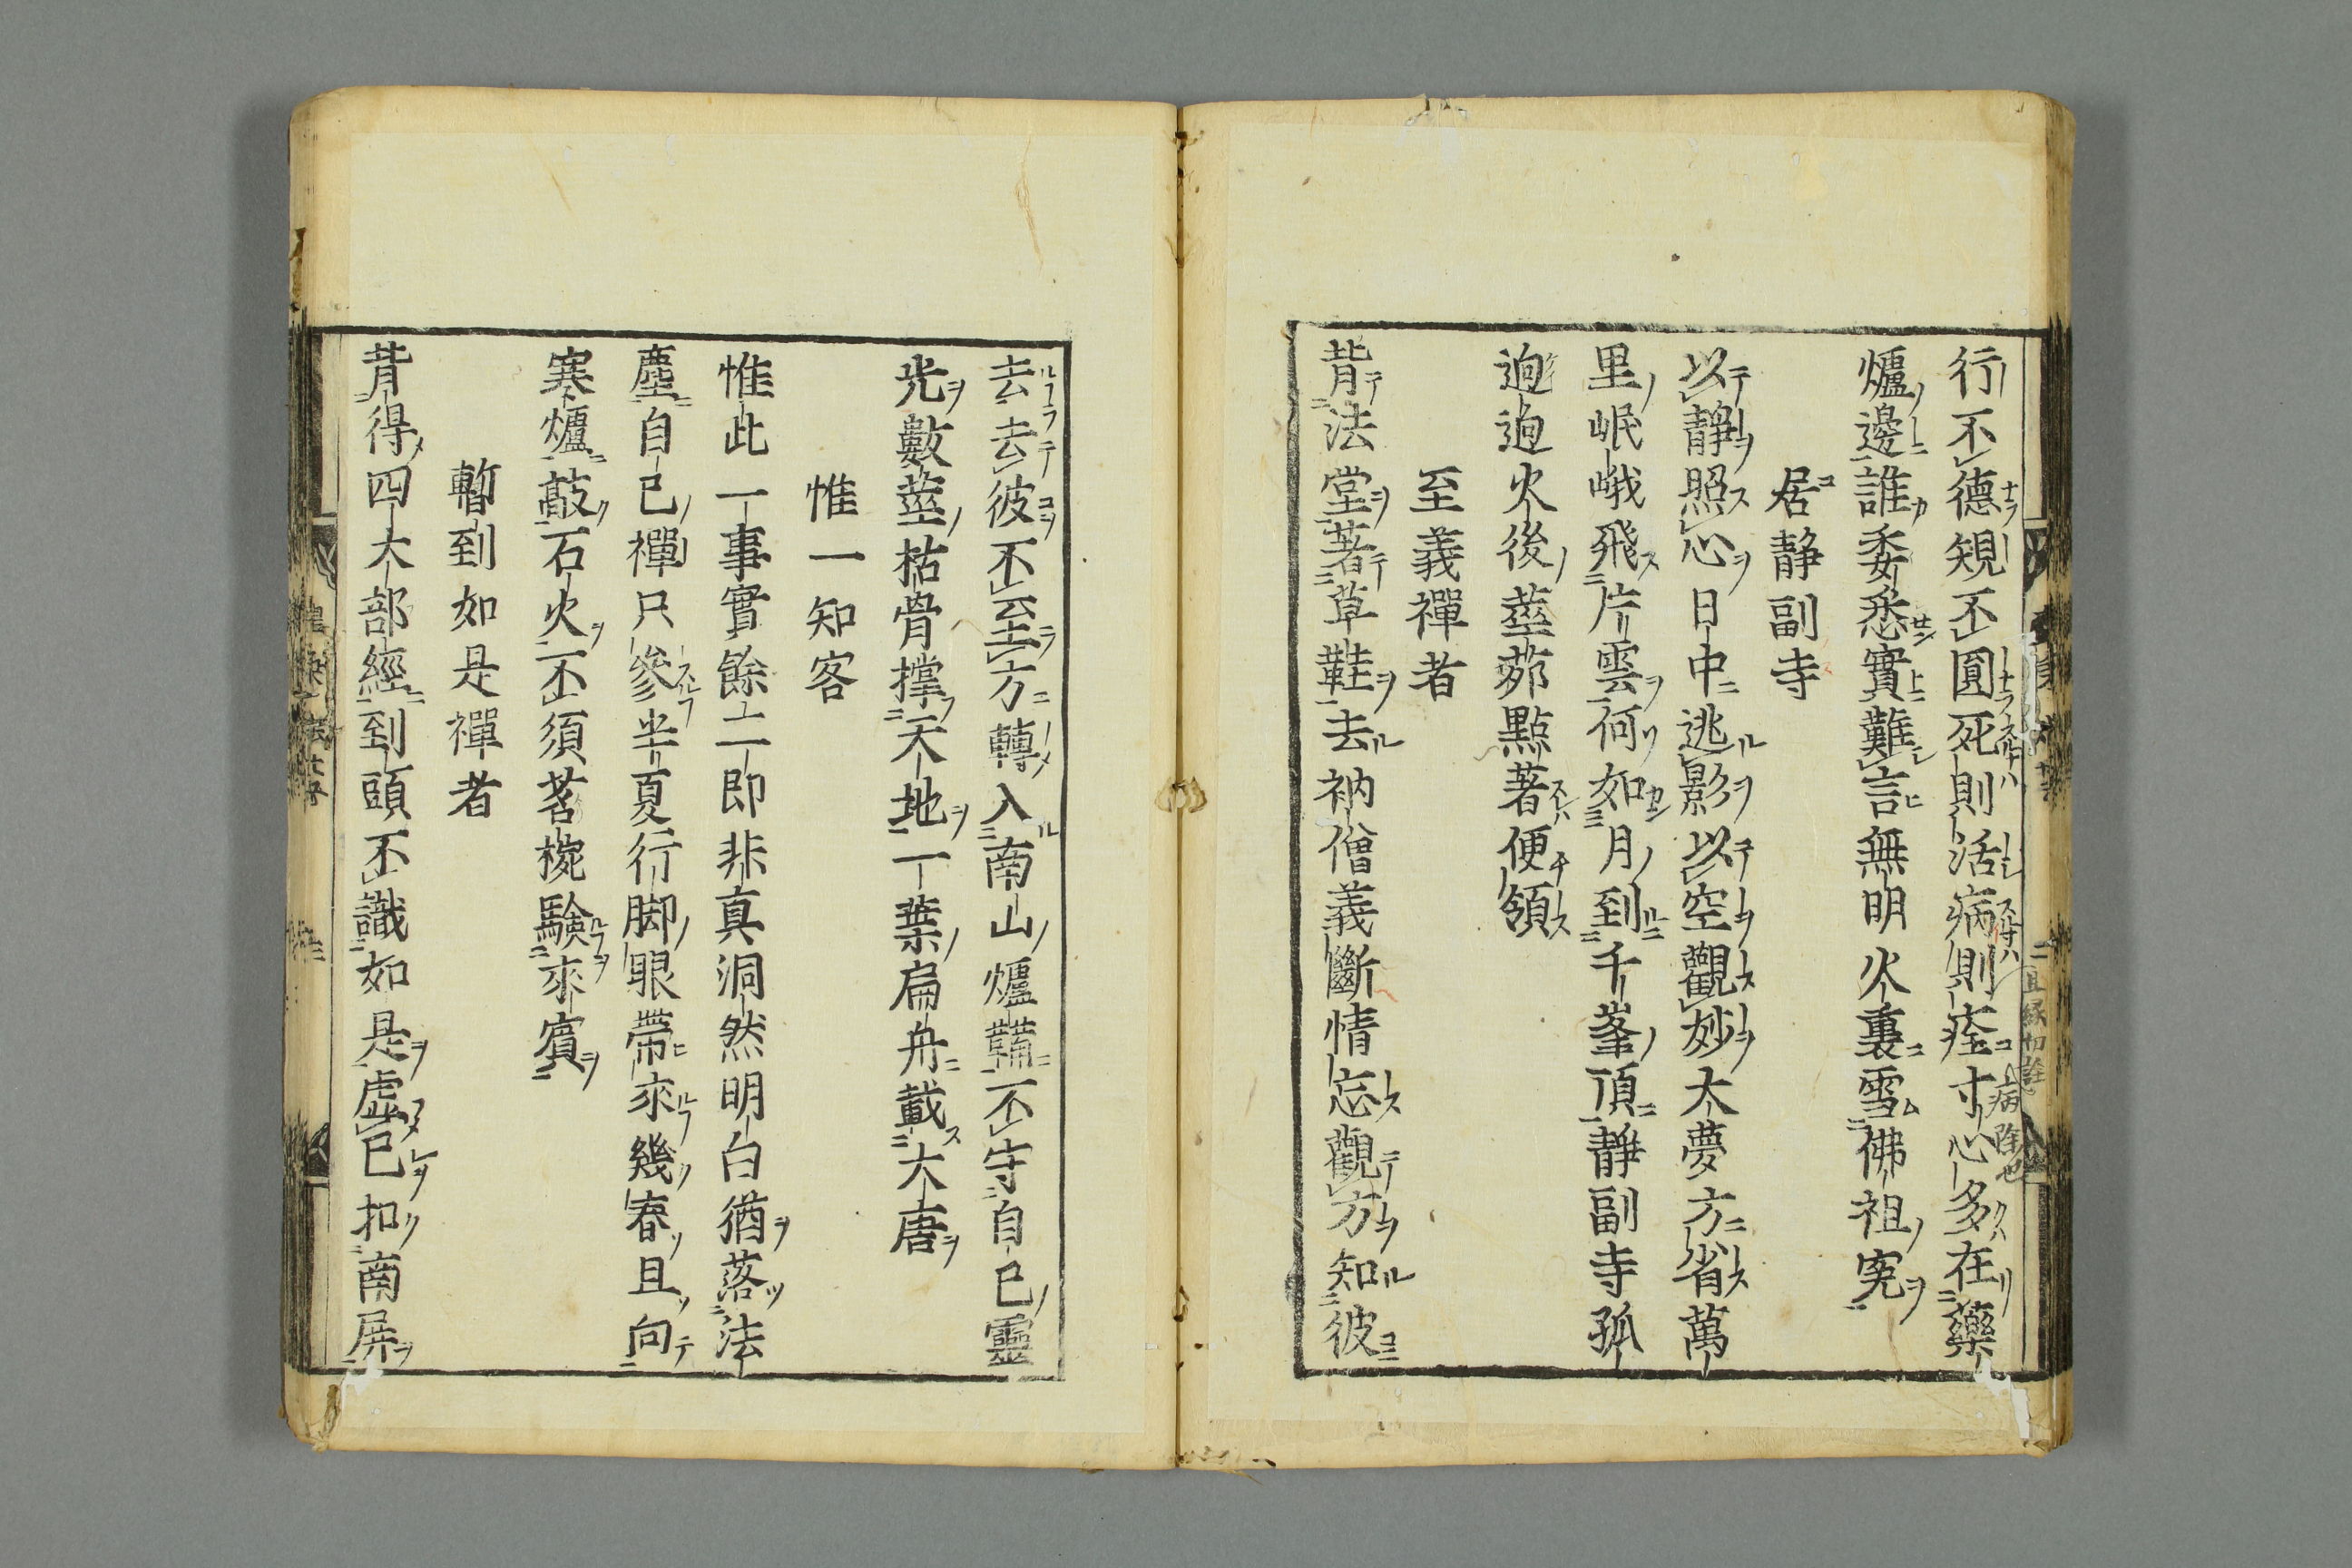 行不德䂓不圓死則活病則痊寸心多在藥
爐邊誰委悉實難言無明火裏雪佛祖寃
居静副寺
以靜照心日中逃影以空觀妙大夢方省萬
里岷峨飛片雲何如月到千峯頂靜副寺孤
逈逈火後莖茆點著便領
至義禪者
背法堂著草鞋去衲僧義斷情忘觀方知彼
去去彼不至方轉入南山爐鞴不守自己靈
光數莖枯骨撑天地一葉扁舟載大唐
惟一知客
惟此一事實餘二即非真洞然明白猶落法
塵自己禪只參半夏行脚眼帶來幾春且向
寒爐敲石火不須茗椀驗來賓
暫到如是禪者
背得四大部經到頭不識如是虛已扣南屏